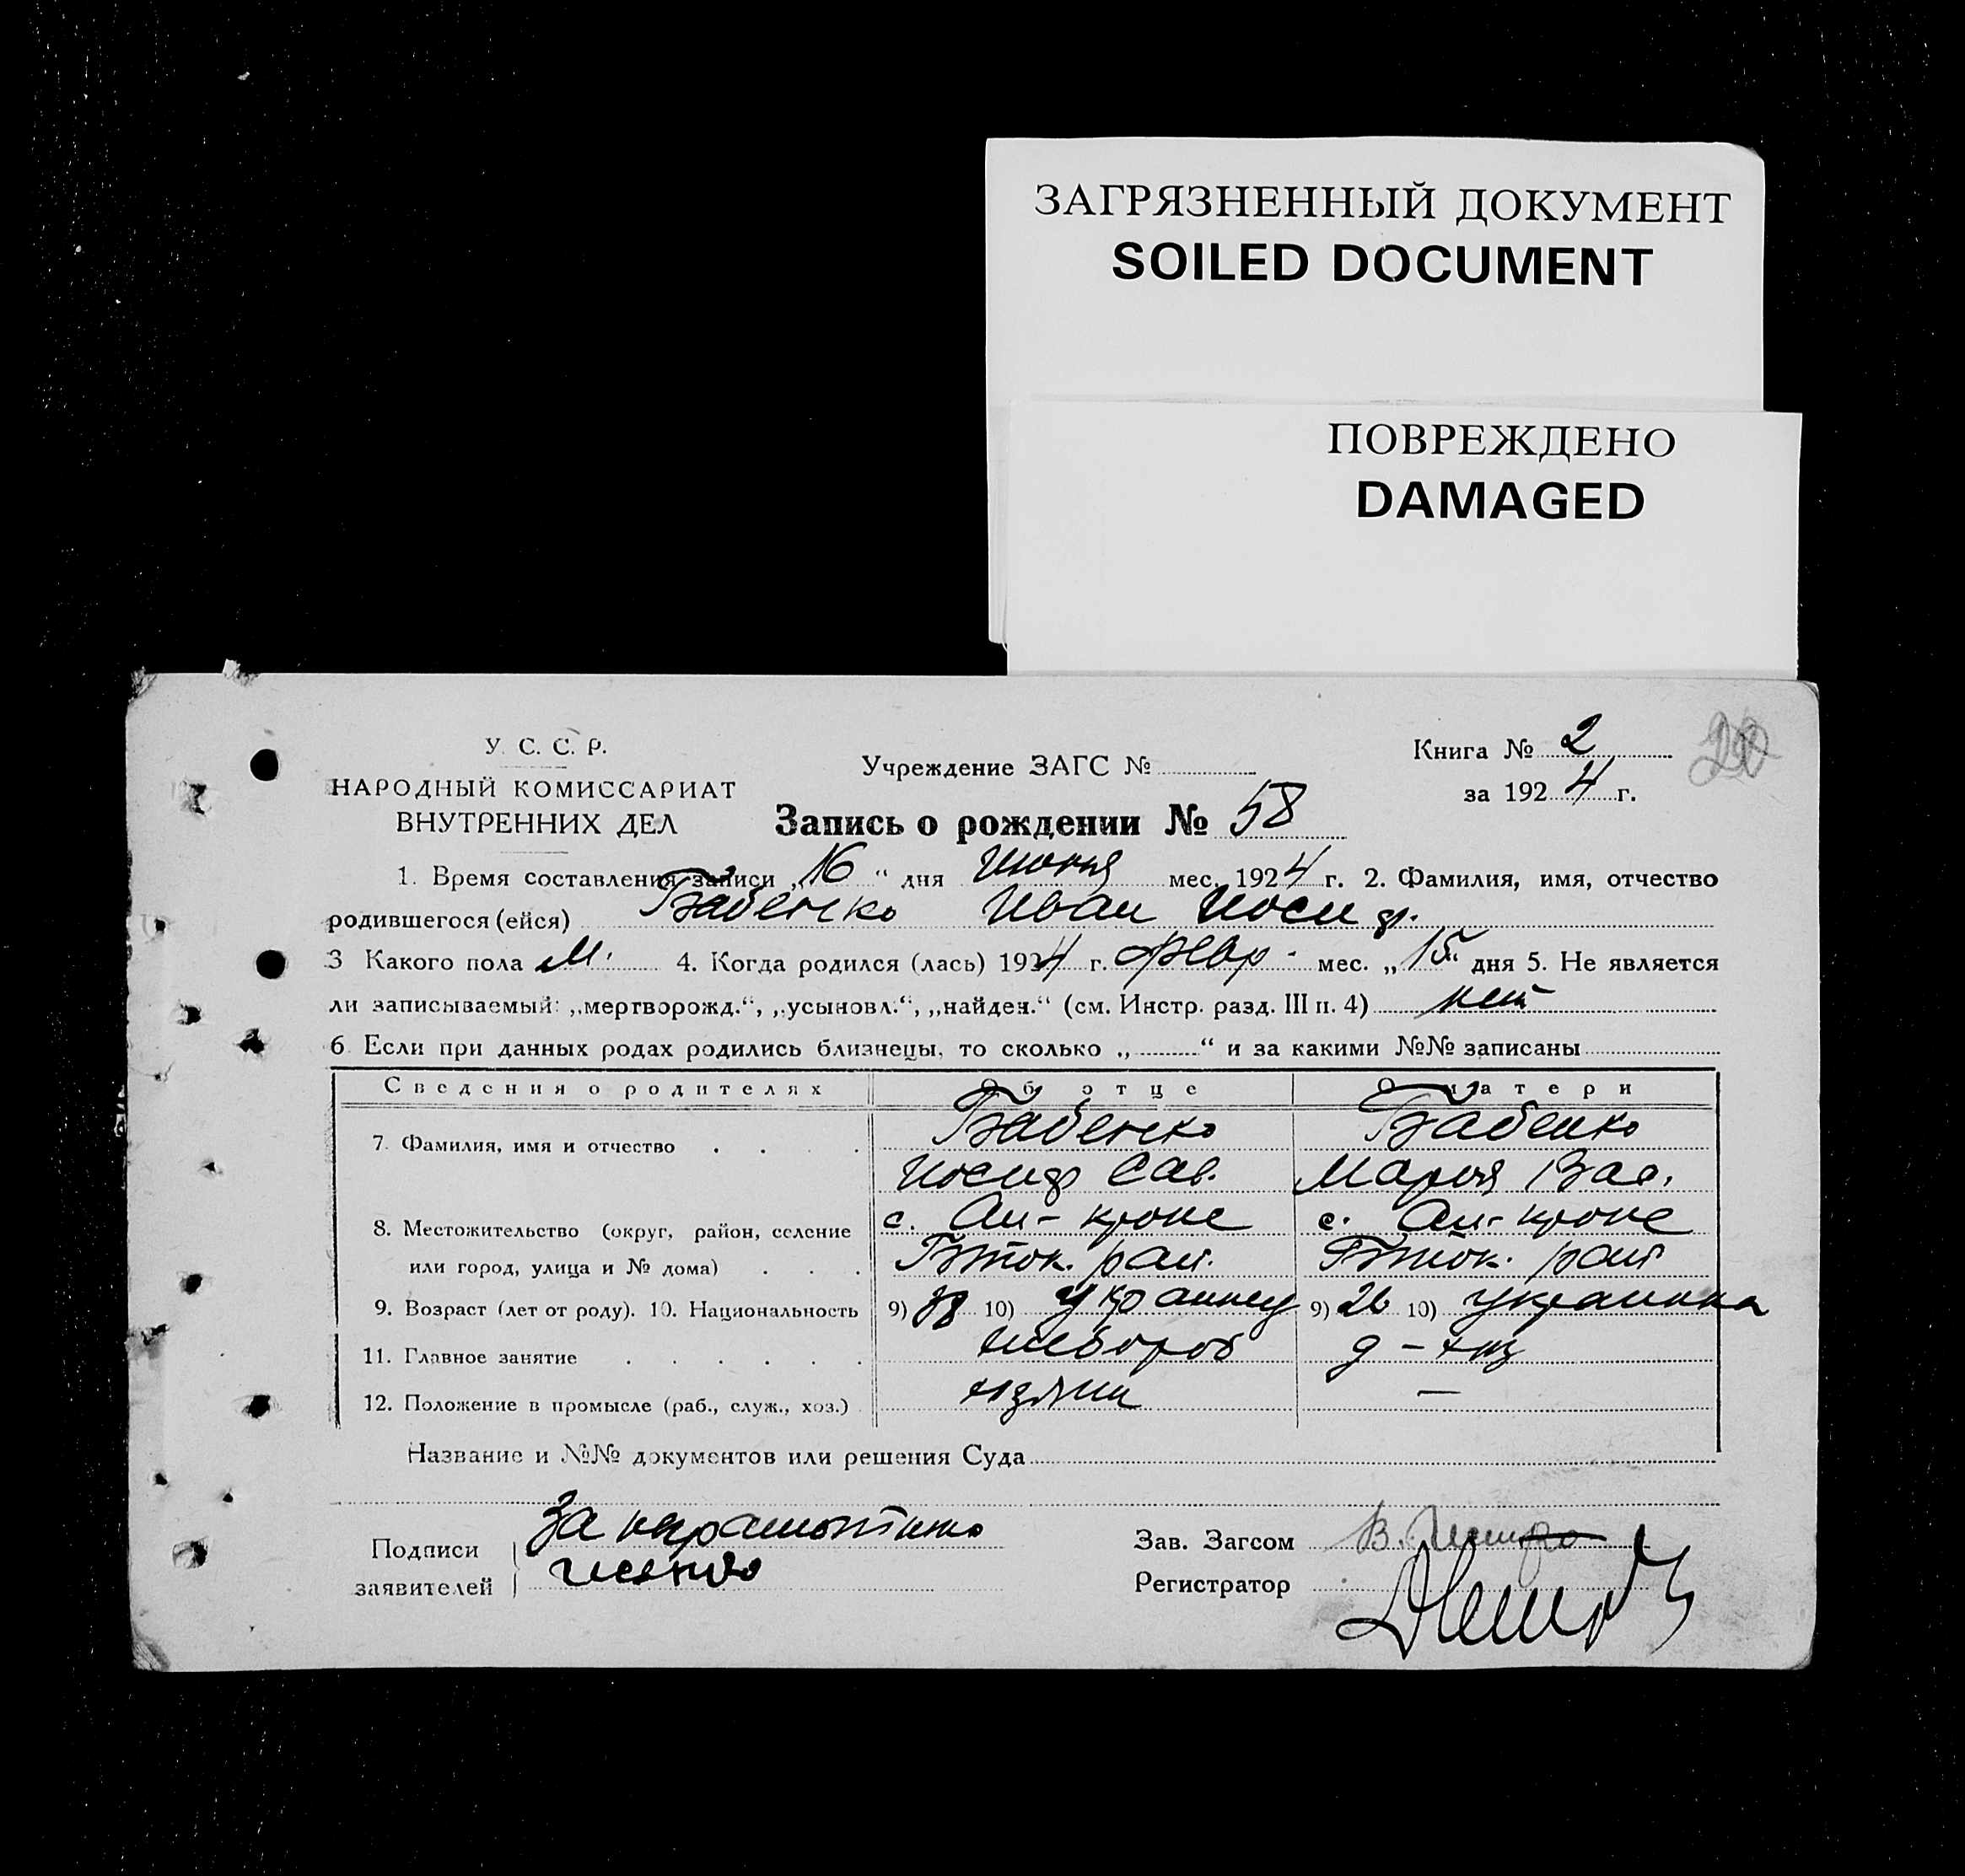 ЗАГРЯЗНЕННЫЙ ДОКУМЕНТ
SOILED DOCUMENT
ПОВРЕЖДЕНО
DAMAGED
У. С. С. Р.
НАРОДНЫЙ КОМИССАРИАТ
ВНУТРЕННИХ ДЕЛ
Учреждение ЗАГС №
Книга № 2
за 1924 г.
Запись о рождении № 58
1. Время составления записи „16“ дня июня мес. 1924 г. 2. Фамилия, имя, отчество
родившегося (ейся) Бабенко Иван Иосиф.
3 Какого пола М. 4. Когда родился (лась) 1924 г. февр. мес. „15“ дня 5. Не является
ли записываемый: „мертворожд.“, „усыновл.“, „найден.“ (см. Инстр. разд. III п. 4) нет
6 Если при данных родах родились близнецы, то сколько „ “ и за какими №№ записаны
Сведения о родителях Об отце О матери
7. Фамилия, имя и отчество Бабенко Бабенко
Иосиф Сав. Мария Вас.
8. Местожительство (округ, район, селение с. Ан-кроне с. Ан-кроне
или город, улица и № дома) рай. рай
9. Возраст (лет от роду). 10. Национальность 9) 10) украинец 9) 26 10) украинка
11. Главное занятие хлебороб д-хоз
12. Положение в промысле (раб., служ., хоз.) хозяин —
Название и №№ документов или решения Суда
Подписи заявителей За неграмотного
Зав. Загсом
Регистратор